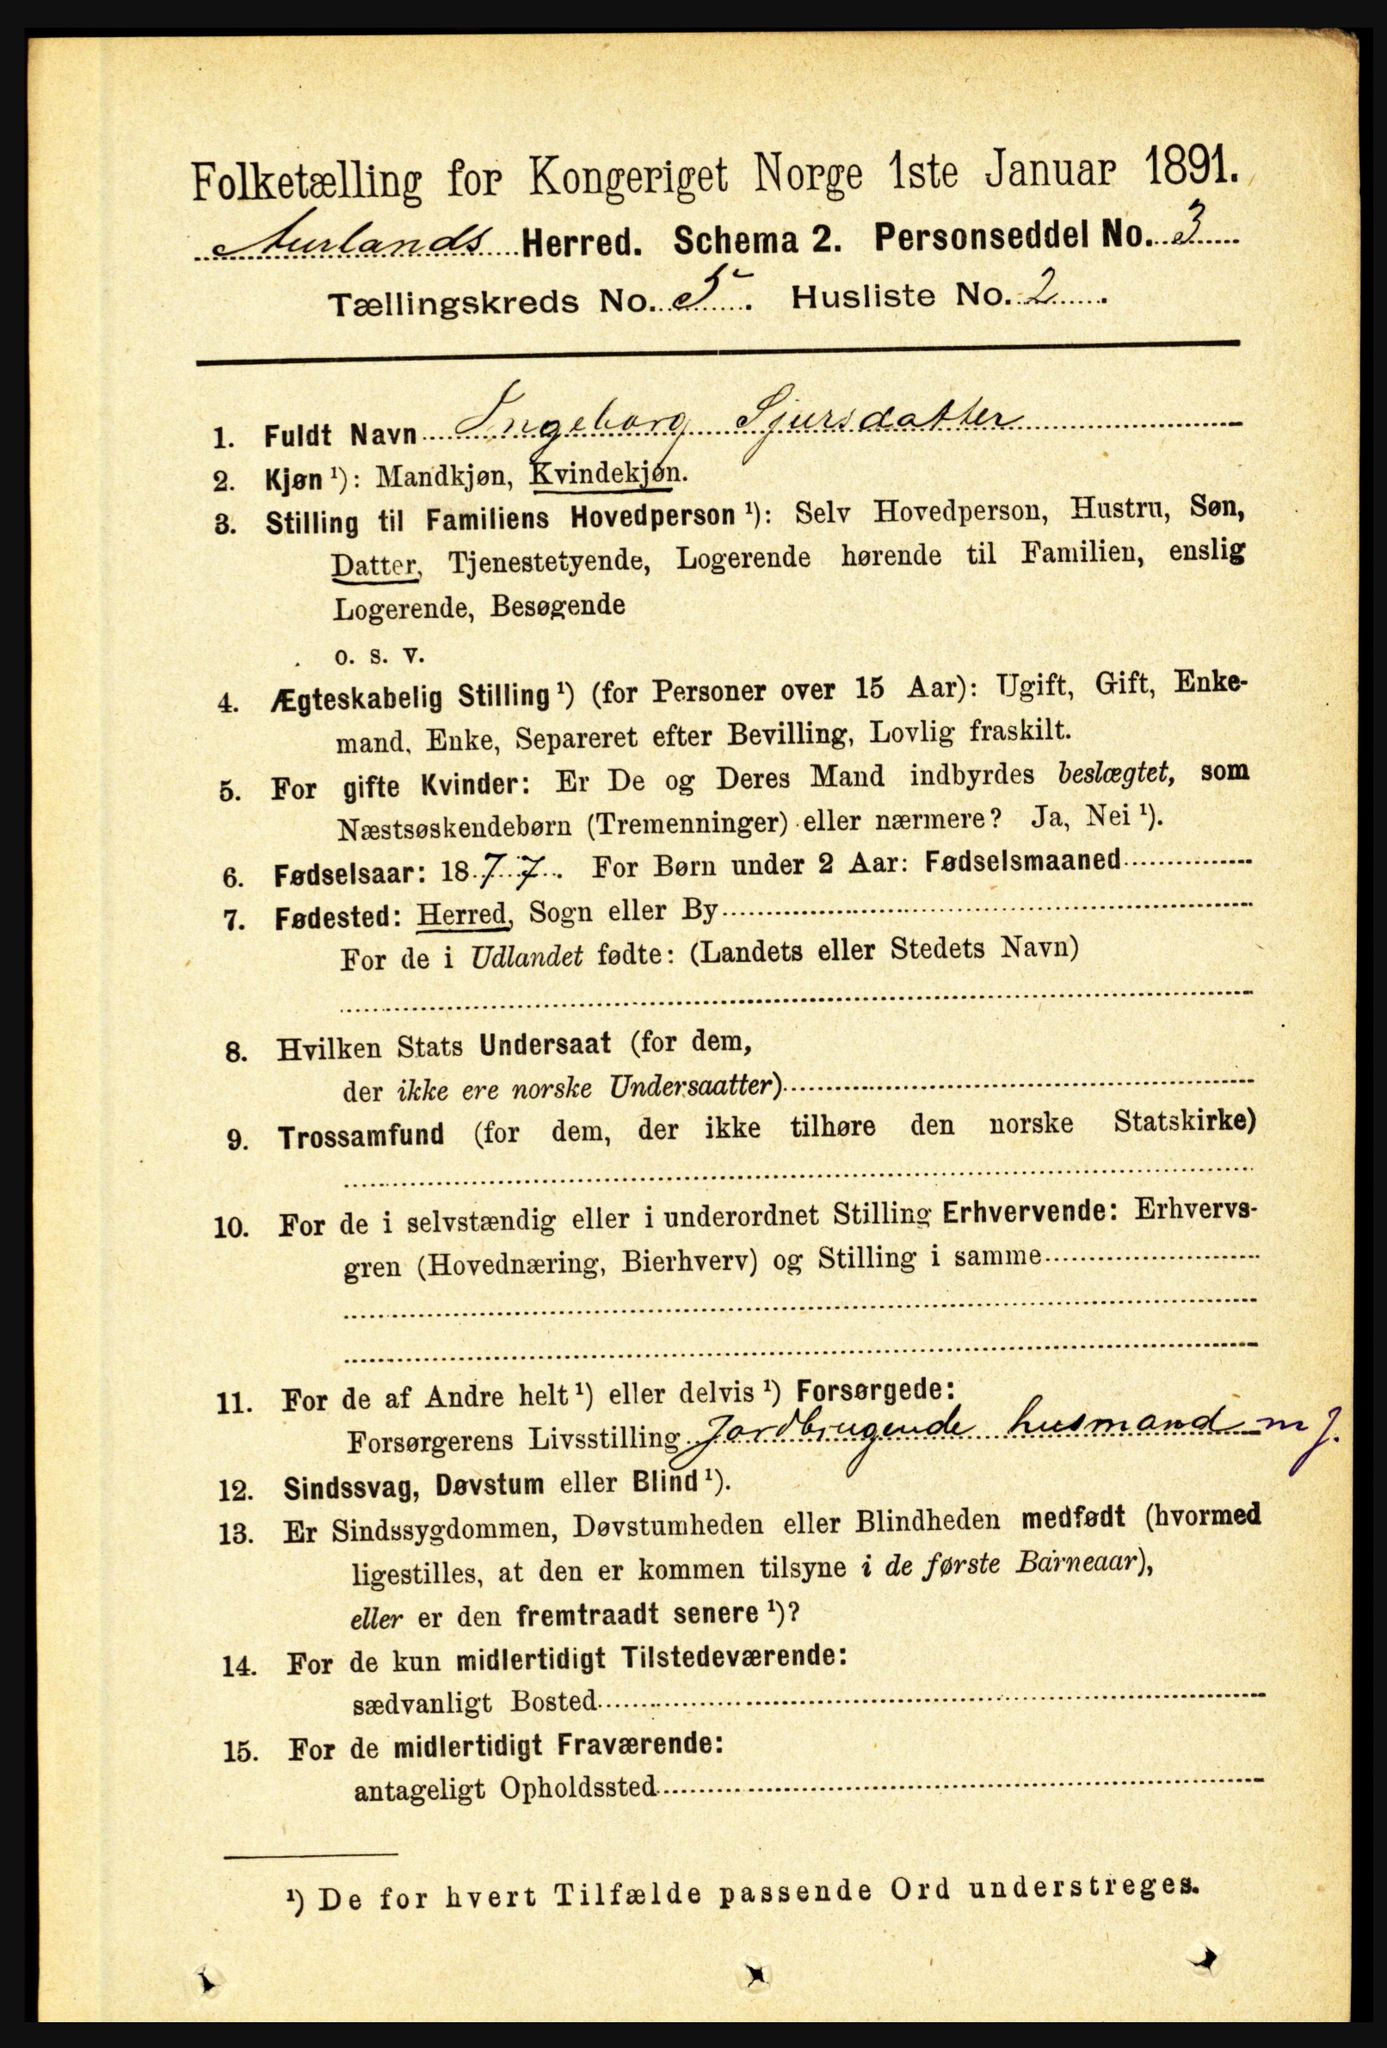 Folketælling for Kongeriget Norge 1ste Januar 1891.
Aurlands Herred. Schema 2. Personseddel No. 3
Tællingskreds No. 5. Husliste No. 2.
1. Fuldt Navn Ingeborg Sjursdatter
2. Kjøn ¹): Mandkjøn, Kvindekjøn.
3. Stilling til Familiens Hovedperson ¹): Selv Hovedperson, Hustru, Søn,
Datter, Tjenestetyende, Logerende hørende til Familien, enslig
Logerende, Besøgende
o. s. v.
4. Ægteskabelig Stilling ¹) (for Personer over 15 Aar): Ugift, Gift, Enke-
mand, Enke, Separeret efter Bevilling, Lovlig fraskilt.
5. For gifte Kvinder: Er De og Deres Mand indbyrdes beslægtet, som
Næstsøskendebørn (Tremenninger) eller nærmere? Ja, Nei ¹).
6. Fødselsaar: 1877. For Børn under 2 Aar: Fødselsmaaned
7. Fødested: Herred, Sogn eller By
For de i Udlandet fødte: (Landets eller Stedets Navn)
8. Hvilken Stats Undersaat (for dem,
der ikke ere norske Undersaatter)
9. Trossamfund (for dem, der ikke tilhøre den norske Statskirke)
10. For de i selvstændig eller i underordnet Stilling Erhvervende: Erhvervs-
gren (Hovednæring, Bierhverv) og Stilling i samme
11. For de af Andre helt ¹) eller delvis ¹) Forsørgede:
Forsørgerens Livsstilling Jordbrugende husmand m j.
12. Sindssvag, Døvstum eller Blind ¹).
13. Er Sindssygdommen, Døvstumheden eller Blindheden medfødt (hvormed
ligestilles, at den er kommen tilsyne i de første Barneaar),
eller er den fremtraadt senere ¹)?
14. For de kun midlertidigt Tilstedeværende:
sædvanligt Bosted
15. For de midlertidigt Fraværende:
antageligt Opholdssted
¹) De for hvert Tilfælde passende Ord understreges.